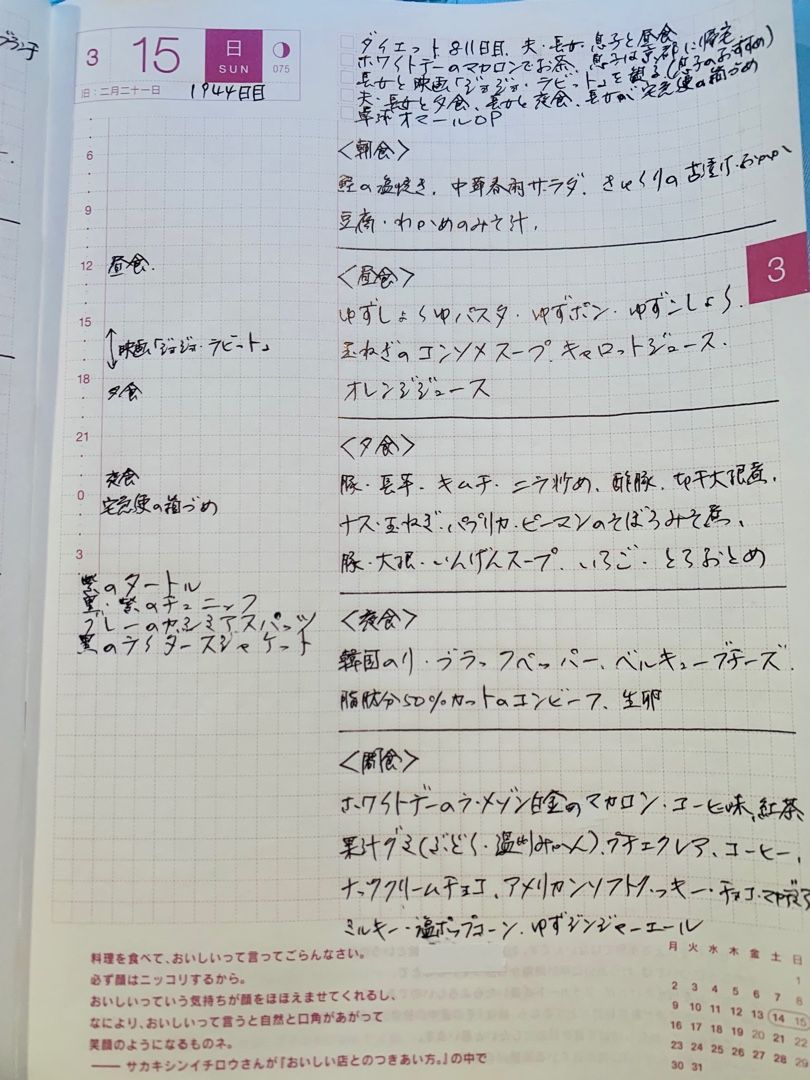 ブランチ
3 15 日 SUN 075
旧:二月二十一日 1944日目
ダイエット811日目、夫・長女・息子と昼食
ホワイトデーのマカロンでお茶、息子は京都に帰宅
長女と映画「ジョジョ・ラビット」を観る(息子のおすすめ)
夫・長女と夕食、長女と夜食、長女が宅急便の箱づめ
草津オマールOP
6
9
12 昼食.
15
映画「ジョジョ・ラビット」
18 夕食
21
夜食
0 宅急便の箱づめ
3
紫のタートル
黒・紫のチュニック
グレーのカシミアスパッツ
黒のライダースジャケット
<朝食>
鮭の塩焼き、中華春雨サラダ、きゅうりの古漬け・おかか
豆腐・わかめのみそ汁、
<昼食>
ゆずしょうゆパスタ・ゆずポン・ゆずこしょう、
玉ねぎのコンソメスープ、キャロットジュース、
オレンジジュース
<夕食>
豚・長芋・キムチ・ニラ炒め、酢豚、切干大根煮、
ナス・玉ねぎ・パプリカ・ピーマンのそぼろみそ煮、
豚・大根・いんげんスープ、いちご・とちおとめ
<夜食>
韓国のり・ブラックペッパー、ベルキューブチーズ、
脂肪分50%カットのコンビーフ、生卵
<間食>
ホワイトデーのラ・メゾン白金のマカロン・コーヒー味、紅茶、
果汁グミ(ぶどう・温州みかん)、プチエクレア、コーヒー、
ナッツクリームチョコ、アメリカンソフトクッキー・チョコ・マカデミア
ミルキー・塩ポップコーン、ゆずジンジャーエール
料理を食べて、おいしいって言ってごらんなさい。
必ず顔はニッコリするから。
おいしいっていう気持ちが顔をほほえませてくれるし、
なにより、おいしいって言うと自然と口角があがって
笑顔のようになるものネ。
—— サカキシンイチロウさんが『おいしい店とのつきあい方。』の中で
3
月 火 水 木 金 土 日
1
2 3 4 5 6 7 8
9 10 11 12 13 14 15
16 17 18 19 20 21 22
23 24 25 26 27 28 29
30 31